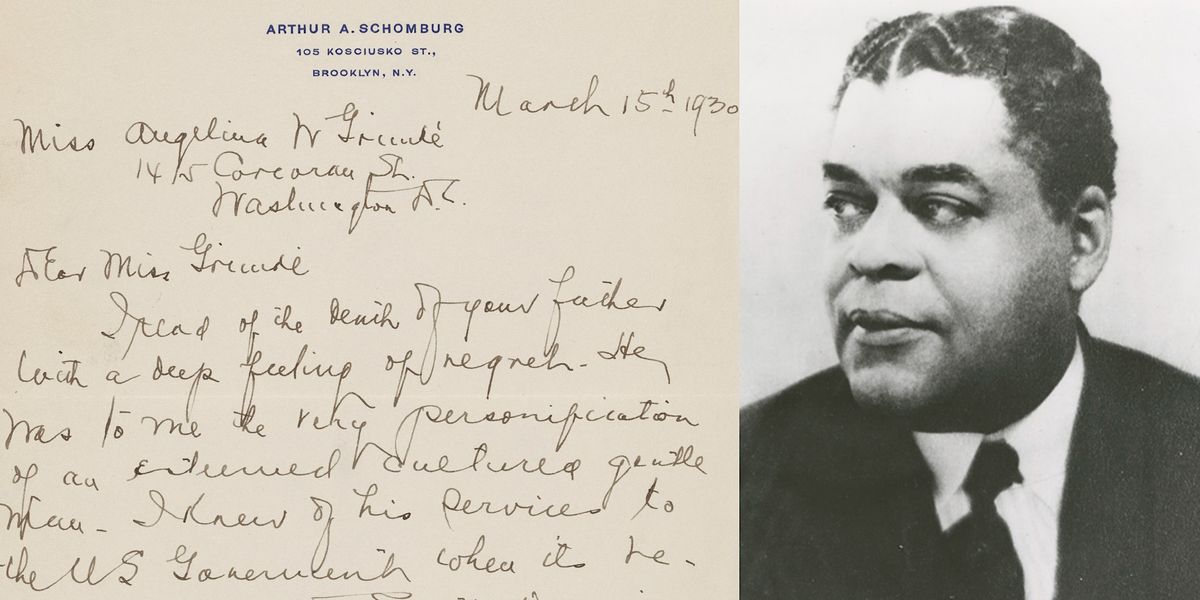 ARTHUR A. SCHOMBURG
105 KOSCIUSKO ST.,
BROOKLYN, N.Y.
March 15th 1930
Miss Angelina W Grimké
1415 Corcoran St.
Washington D.C.
Dear Miss Grimké
I read of the death of your father
with a deep feeling of regret. He
was to me the very personification
of an esteemed cultured gentle
man - I knew of his services to
the US Government when its re-